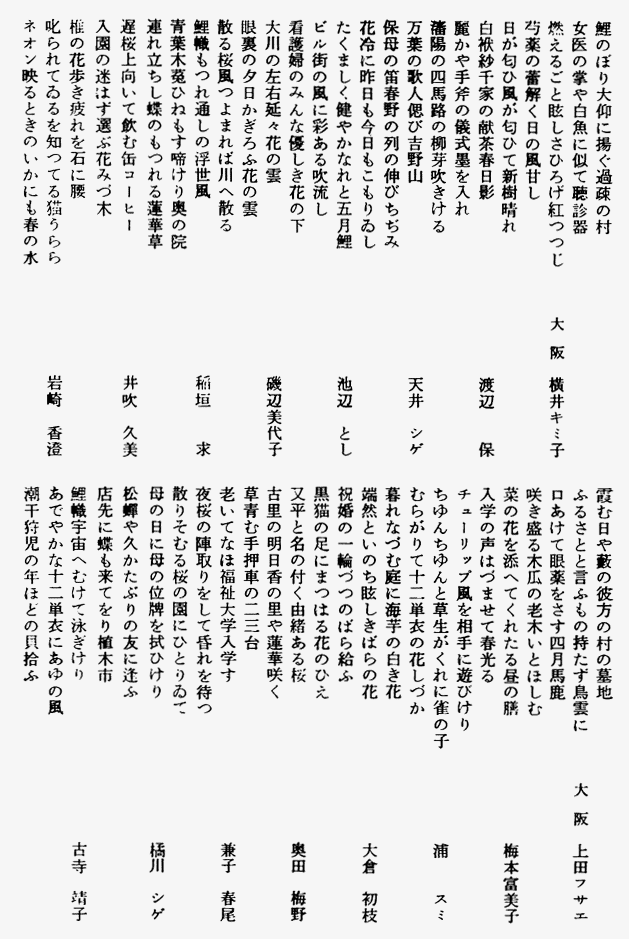 鯉のぼり大仰に揚ぐ過疎の村
女医の掌や白魚に似て聴診器
燃えるごと眩しさひろげ紅つつじ
大阪 横井キミ子
芍薬の蕾解く日の風甘し
日が匂ひ風が匂ひて新樹晴れ
白袱紗千家の献茶春日影
渡辺 保
麗かや手斧の儀式墨を入れ
瀋陽の四馬路の柳芽吹きける
万葉の歌人偲び吉野山
天井 シゲ
保母の笛春野の列の伸びちぢみ
花冷に昨日も今日もこもりゐし
たくましく健やかなれと五月鯉
池辺 とし
ビル街の風に彩ある吹流し
看護婦のみんな優しき花の下
大川の左右延々花の雲
磯辺美代子
眼裏の夕日かぎろふ花の雲
散る桜風つよまれば川へ散る
鯉幟もつれ通しの浮世風
稲垣 求
青葉木菟ひねもす啼けり奥の院
連れ立ちし蝶のもつれる蓮華草
遅桜上向いて飲む缶コーヒー
井吹 久美
入園の迷はず選ぶ花みづ木
椎の花歩き疲れを石に腰
叱られてゐるを知つてる猫うらら
岩崎 香澄
ネオン映るときのいかにも春の水
霞む日や藪の彼方の村の墓地
ふるさとと言ふもの持たず鳥雲に
大阪 上田フサエ
口あけて眼薬をさす四月馬鹿
咲き盛る木瓜の老木いとほしむ
菜の花を添へてくれたる昼の膳
梅本富美子
入学の声はづませて春光る
チューリップ風を相手に遊びけり
ちゆんちゆんと草生がくれに雀の子
浦 スミ
むらがりて十二単衣の花しづか
暮れなづむ庭に海芋の白き花
端然といのち眩しきばらの花
大倉 初枝
祝婚の一輪づつのばら給ふ
黒猫の足にまつはる花のひえ
又平と名の付く由緒ある桜
奥田 梅野
古里の明日香の里や蓮華咲く
草青む手押車の二三台
老いてなほ福祉大学入学す
兼子 春尾
夜桜の陣取りをして昏れを待つ
散りそむる桜の園にひとりゐて
母の日に母の位牌を拭ひけり
橘川 シゲ
松蟬や久かたぶりの友に逢ふ
店先に蝶も来てをり植木市
鯉幟宇宙へむけて泳ぎけり
古寺 靖子
あでやかな十二単衣にあゆの風
潮干狩児の年ほどの貝拾ふ